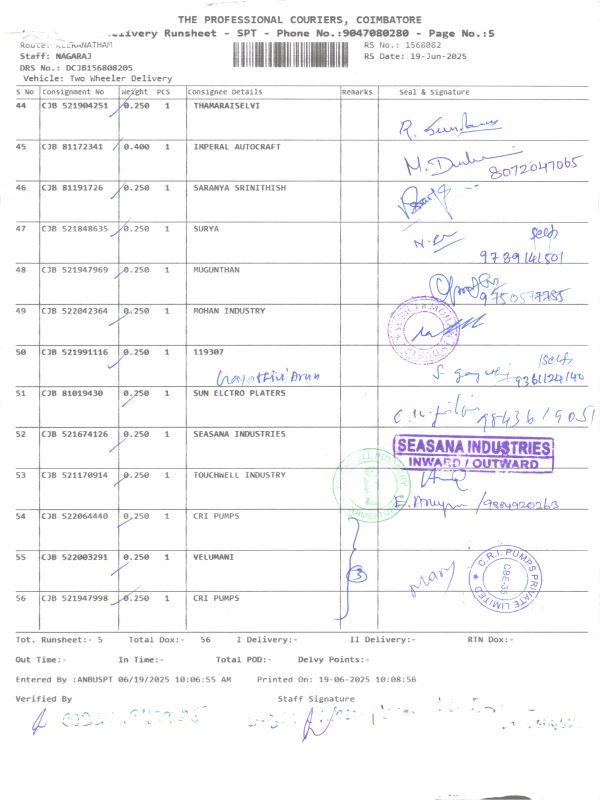 THE PROFESSIONAL COURIERS, COIMBATORE
Delivery Runsheet - SPT - Phone No.:9047080280 - Page No.:5
Route: KEERANATHAM RS No.: 1568082
Staff: NAGARAJ RS Date: 19-Jun-2025
DRS No.: DCJB156808205
Vehicle: Two Wheeler Delivery
S No Consignment No Weight PCS Consignee Details Remarks Seal & Signature
44 CJB 521904251 0.250 1 THAMARAISELVI
45 CJB 81172341 0.400 1 IMPERAL AUTOCRAFT
8072047065
46 CJB 81191726 0.250 1 SARANYA SRINITHISH
47 CJB 521848635 0.250 1 SURYA
self
9789141501
48 CJB 521947969 0.250 1 MUGUNTHAN
9750577755
49 CJB 522042364 0.250 1 MOHAN INDUSTRY
50 CJB 521991116 0.250 1 119307
self
9361124140
51 CJB 81019430 0.250 1 SUN ELCTRO PLATERS
98436 19051
52 CJB 521674126 0.250 1 SEASANA INDUSTRIES
SEASANA INDUSTRIES
INWARD / OUTWARD
53 CJB 521170914 0.250 1 TOUCHWELL INDUSTRY
54 CJB 522064440 0.250 1 CRI PUMPS
55 CJB 522003291 0.250 1 VELUMANI
3
Mary
C.R.I. PUMPS PRIVATE LIMITED
56 CJB 521947998 0.250 1 CRI PUMPS
Tot. Runsheet:- 5 Total Dox:- 56 I Delivery:- II Delivery:- RTN Dox:-
Out Time:- In Time:- Total POD:- Delvy Points:-
Entered By :ANBUSPT 06/19/2025 10:06:55 AM Printed On: 19-06-2025 10:08:56
Verified By Staff Signature